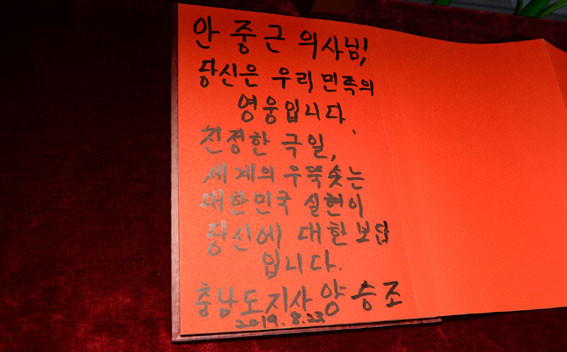 안중근 의사님!
당신은 우리 민족의
영웅입니다.
진정한 극일,
세계의 우뚝솟는
대한민국 실현이
당신에 대한 보답
입니다.
충남도지사 양승조
2019. 8. 23